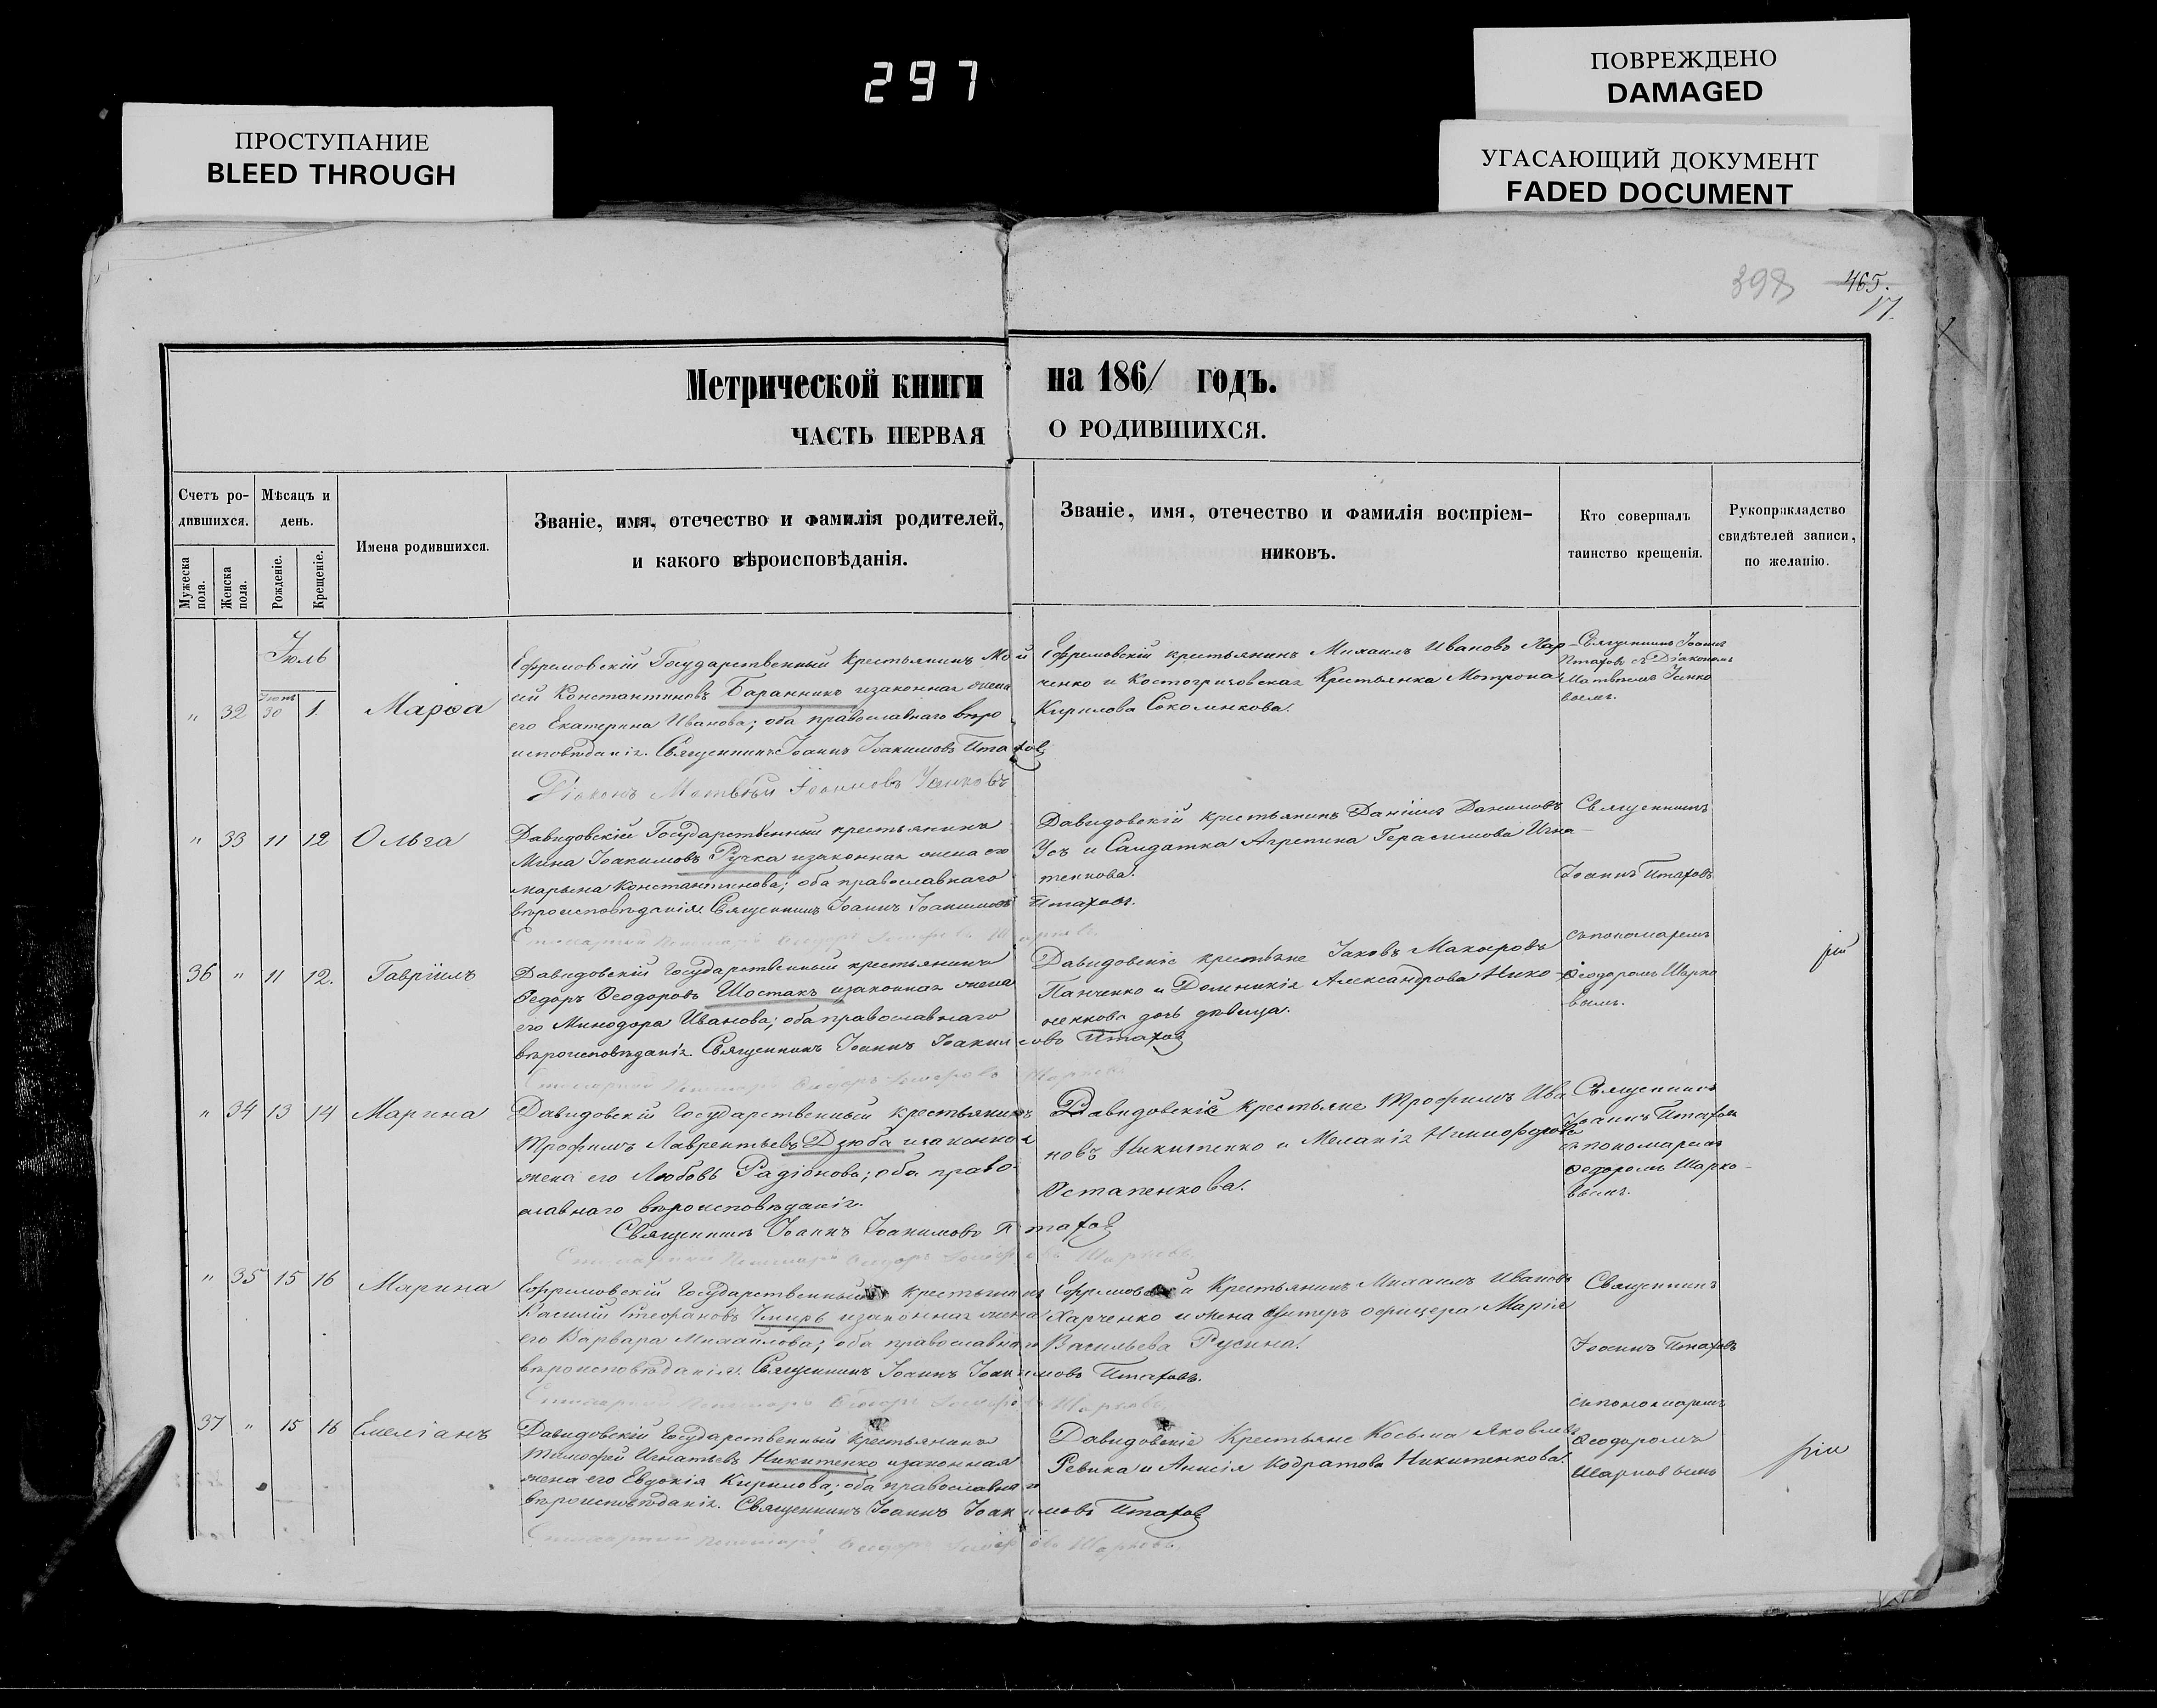 297
ПОВРЕЖДЕНО
DAMAGED
ПРОСТУПАНИЕ
BLEED THROUGH
УГАСАЮЩИЙ ДОКУМЕНТ
FADED DOCUMENT
398 465.
17.
Метрической книги на 1861 годъ.
ЧАСТЬ ПЕРВАЯ О РОДИВШИХСЯ.
Счетъ ро-
дившихся.
Мѣсяцъ и
день.
Мужеска
пола.
Женска
пола.
Рожденіе.
Крещеніе.
Имена родившихся.
Званіе, имя, отечество и фамилія родителей,
и какого вѣроисповѣданія.
Званіе, имя, отечество и фамилія воспріем-
никовъ.
Кто совершалъ
таинство крещенія.
Рукоприкладство
свидѣтелей записи,
по желанію.
Іюль
" 32 Іюнь 30 1. Марѳа
Ефремовскій Государственный Крестьянинъ
Константиновъ Баранникъ изаконная жена
его Екатерина Иванова; оба православнаго вѣро
исповѣданія. Священникъ Іоаннъ Іоакимовъ Птаховъ
Діаконъ Матвѣй Іоанновъ
Ефремовскій крестьянинъ Михаилъ Ивановъ Хар-
ченко и Костогризовская Крестьянка Мотрона
Кирилова Соколенкова.
Священникъ Іоаннъ
Птаховъ съ Діакономъ
" 33 11 12 Ольга
Давидовскій Государственный крестьянинъ
Мина Іоакимовъ Ручка изаконная жена его
Марьяна Константинова; оба православнаго
вѣроисповѣданія Священникъ Іоаннъ Іоакимовъ Птаховъ.
Давидовскій крестьянинъ Даніилъ Даниловъ
Усъ и Салдатка Агрепина Герасимова Игна-
тенкова.
Священникъ
Іоаннъ Птаховъ
съ пономаремъ
Ѳеодоромъ Шарко
вымъ.
36 " 11 12. Гавріилъ
Давидовскій Государственный крестьянинъ
Ѳедоръ Ѳеодоровъ Шостакъ изаконная жена
его Минодора Иванова; оба православнаго
вѣроисповѣданія Священникъ Іоаннъ Іоакимовъ Птаховъ
Давидовскіе крестьяне Іаковъ Макаровъ
Панченко и Домникія Александрова Нико-
ненкова дочь дѣвица.
" 34 13 14 Марина
Давидовскій Государственный крестьянинъ
Трофимъ Лаврентьевъ Дзюба изаконная
жена его Любовь Радіонова; оба право-
славнаго вѣроисповѣданія.
Священникъ Іоаннъ Іоакимовъ Птаховъ
Давидовскіе крестьяне Трофимъ Ива
новъ Никитенко и Меланія Никифорова
Остапенкова.
Священникъ
Іоаннъ Птаховъ
съ пономаремъ
Ѳедоромъ Шарко-
вымъ.
" 35 15 16 Марина
Ефремовскій Государственный крестьянинъ
Василій Стефановъ Чмирь изаконная жена
его Варвара Михайлова; оба православнаго
вѣроисповѣданія. Священникъ Іоаннъ Іоакимовъ Птаховъ.
Ефремовскій Крестьянинъ Михаилъ Ивановъ
Харченко и жена Унтеръ офицера Марія
Васильева Русина.
Священникъ
Іоаннъ Птаховъ
съ пономаремъ
Ѳеодоромъ
Шарковымъ
37 " 15 16 Емеліанъ
Давидовскій Государственный Крестьянинъ
Тимофей Игнатьевъ Никитенко изаконная
жена его Евдокія Кирилова; оба православнаго
вѣроисповѣданія. Священникъ Іоаннъ Іоакимовъ Птаховъ
Давидовскіе Крестьяне Косьма Яковлевъ
Ревика и Анисія Кодратова Никитенкова.